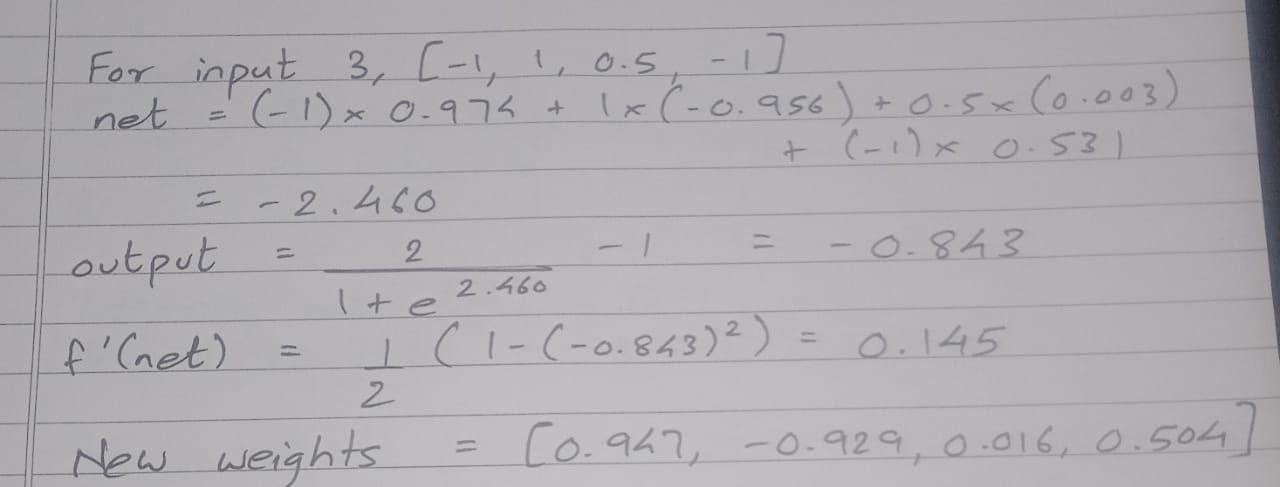 For input 3, [-1, 1, 0.5, -1]
net = (-1) × 0.974 + 1×(-0.956) + 0.5×(0.003)
+ (-1)× 0.531
= -2.460
output = 2 / (1 + e^2.460) - 1 = -0.843
f'(net) = 1/2 (1-(-0.843)²) = 0.145
New weights = [0.947, -0.929, 0.016, 0.504]